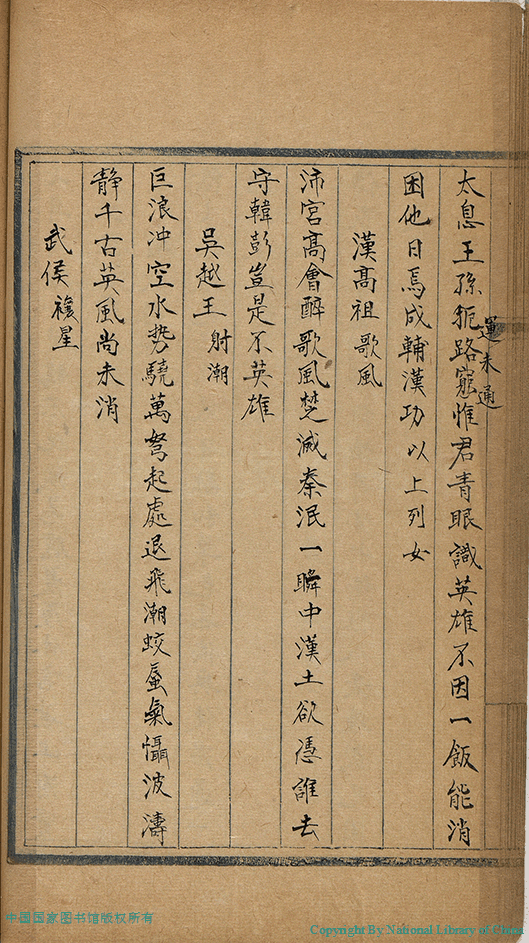 太息王孫扼路窮惟君青眼識英雄不因一飯能消
運未通
困他日焉成輔漢功以上列女
漢高祖歌風
沛宮高會醉歌風楚滅秦泯一瞬中漢土欲憑誰去
守韓彭豈是不英雄
吳越王射潮
巨浪冲空水势驍萬弩起處退飛潮蛟蜃氣懾波濤
静千古英風尚未消
武侯禳星
中国国家图书馆版权所有
Copyright By National Library of China